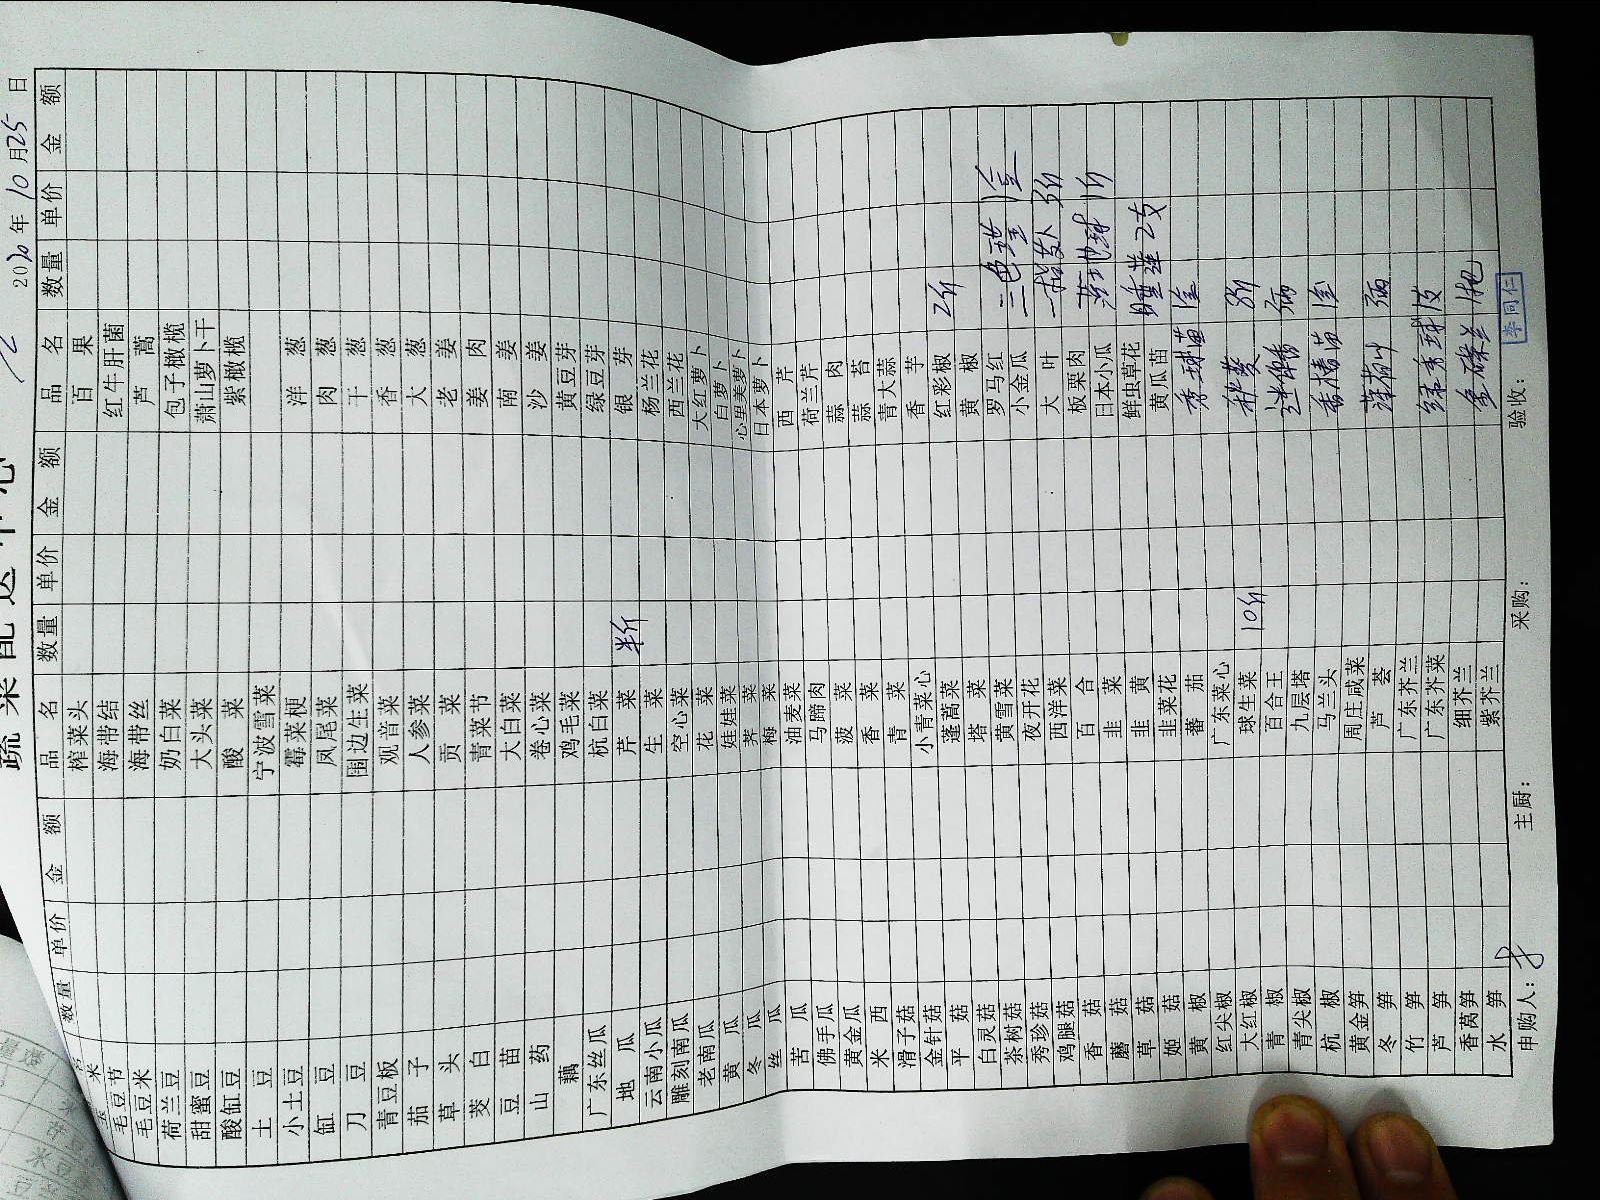 蔬菜配送中心
2020年10月25日
数量 单价 金额 品名 数量 单价 金额 品名 数量 单价 金额
米 榨菜头 百果
毛豆节 海带结 红牛肝菌
毛豆米 海带丝 芦蒿
荷兰豆 奶白菜 包子橄榄
甜蜜豆 大头菜 萧山萝卜干
酸缸豆 酸菜 紫橄榄
土豆 宁波雪菜
小土豆 霉菜梗 洋葱
缸豆 凤尾菜 肉葱
刀豆 围边生菜 干葱
青豆板 观音菜 香葱
茄子 人参菜 大葱
草头 贡菜 老姜
菱白 青菜节 姜肉
豆苗 大白菜 南姜
山药 卷心菜 沙姜
藕 鸡毛菜 黄豆芽
广东丝瓜 杭白菜 绿豆芽
地瓜 芹菜 半斤 银芽
云南小瓜 生菜 杨兰花
雕刻南瓜 空心菜 西兰花
老南瓜 花菜 大红萝卜
黄瓜 娃娃菜 白萝卜
冬瓜 荠菜 心里美萝卜
丝瓜 梅菜 日本萝卜
苦瓜 油麦菜 西芹
佛手瓜 马蹄肉 荷兰芹
黄金瓜 菠菜 蒜肉
米西 香菜 蒜苔
滑子菇 青菜 青大蒜
金针菇 小青菜心 香芋
平菇 蓬蒿菜 红彩椒 2斤
白灵菇 塔菜 黄椒
茶树菇 黄雪菜 罗马红 三色堇 1盒
秀珍菇 夜开花 小金瓜
鸡腿菇 西洋菜 大叶 3斤
香菇 百合 板栗肉 1斤
蘑菇 韭菜 日本小瓜
草菇 韭黄 鲜虫草花 睡莲2支
姬菇 韭菜花 黄瓜苗
黄椒 蕃茄
红尖椒 广东菜心
大红椒 球生菜 10斤
青椒 百合王
青尖椒 九层塔
杭椒 马兰头
黄金笋 周庄咸菜 薄荷叶
冬笋 芦荟
竹笋 广东芥兰
芦笋 广东芥菜
香莴笋 细芥兰
水笋 紫芥兰
申购人： 主厨： 采购： 验收： 李同仁